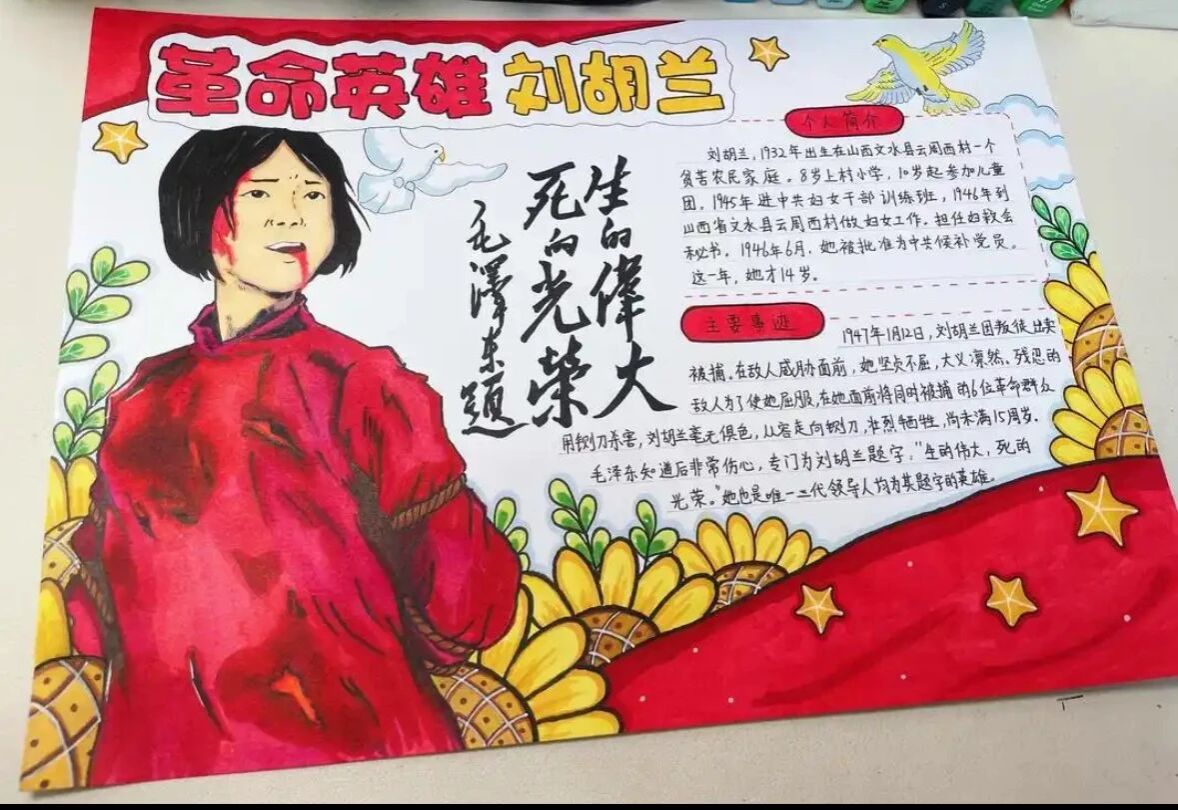 革命英雄 刘胡兰
生的偉大
死的光榮
毛澤东題
个人简介
刘胡兰，1932年出生在山西文水县云周西村一个
贫苦农民家庭。8岁上村小学，10岁起参加儿童
团。1945年进中共妇女干部训练班，1946年到
山西省文水县云周西村做妇女工作。担任妇救会
秘书。1946年6月，她被批准为中共候补党员。
这一年，她才14岁。
主要事迹
1947年1月12日，刘胡兰因叛徒出卖
被捕。在敌人威胁面前，她坚贞不屈，大义凛然。残忍的
敌人为了使她屈服，在她面前将同时被捕的6位革命群众
用铡刀杀害，刘胡兰毫无惧色，从容走向铡刀，壮烈牺牲，尚未满15周岁。
毛泽东知道后非常伤心，专门为刘胡兰题字："生的伟大，死的
光荣。"她也是唯一三代领导人均为其题字的英雄。